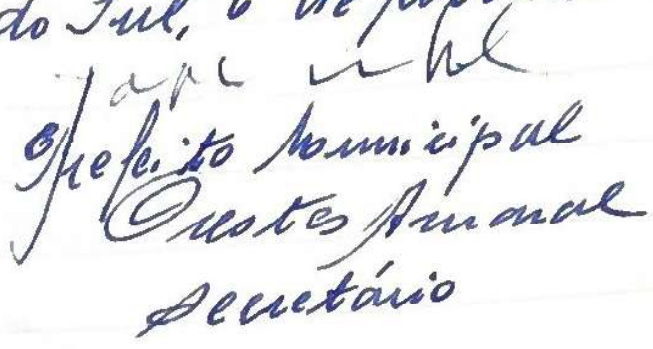 do Sul, 6 de
Prefeito Municipal
Orestes Amaral
Secretário